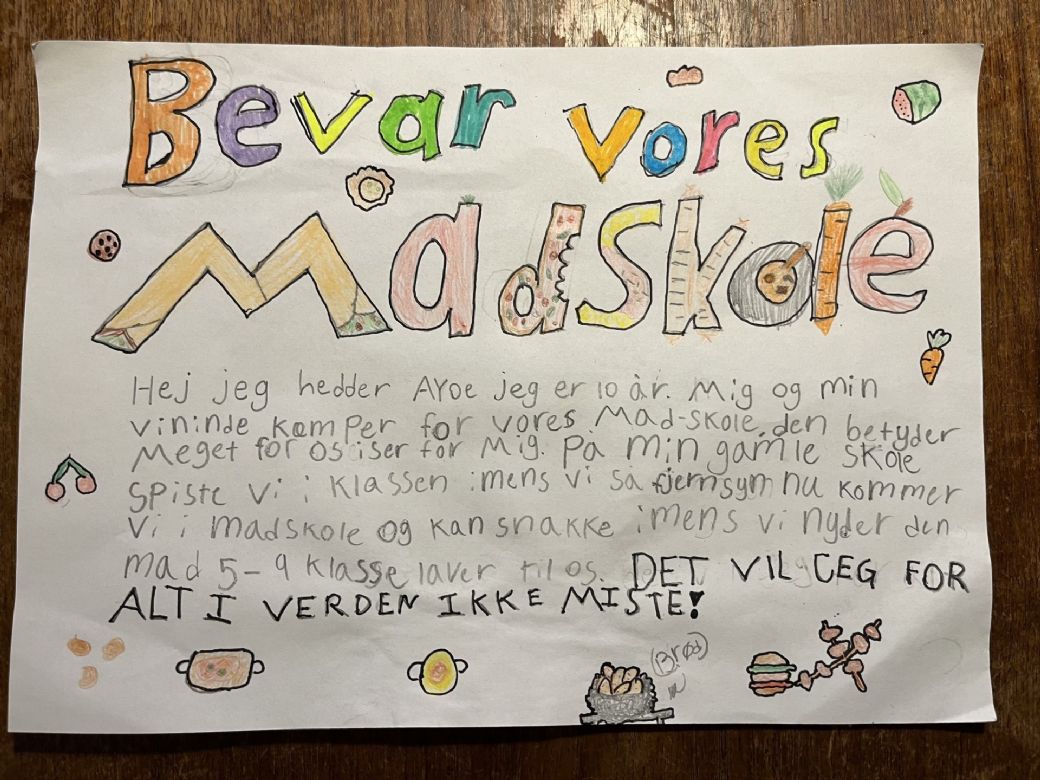 Bevar vores
Madskole
Hej jeg hedder Ayoe jeg er 10 år. Mig og min
vininde kæmper for vores Mad-skole.den betyder
Meget for os iser for Mig. på min gamle skole
spiste vi i klassen imens vi så fjernsym nu kommer
vi i madskole og kan snakke imens vi nyder den
mad 5-9 klasse laver til os. DET VIL JEG FOR
ALT I VERDEN IKKE MISTE!
(Brød)